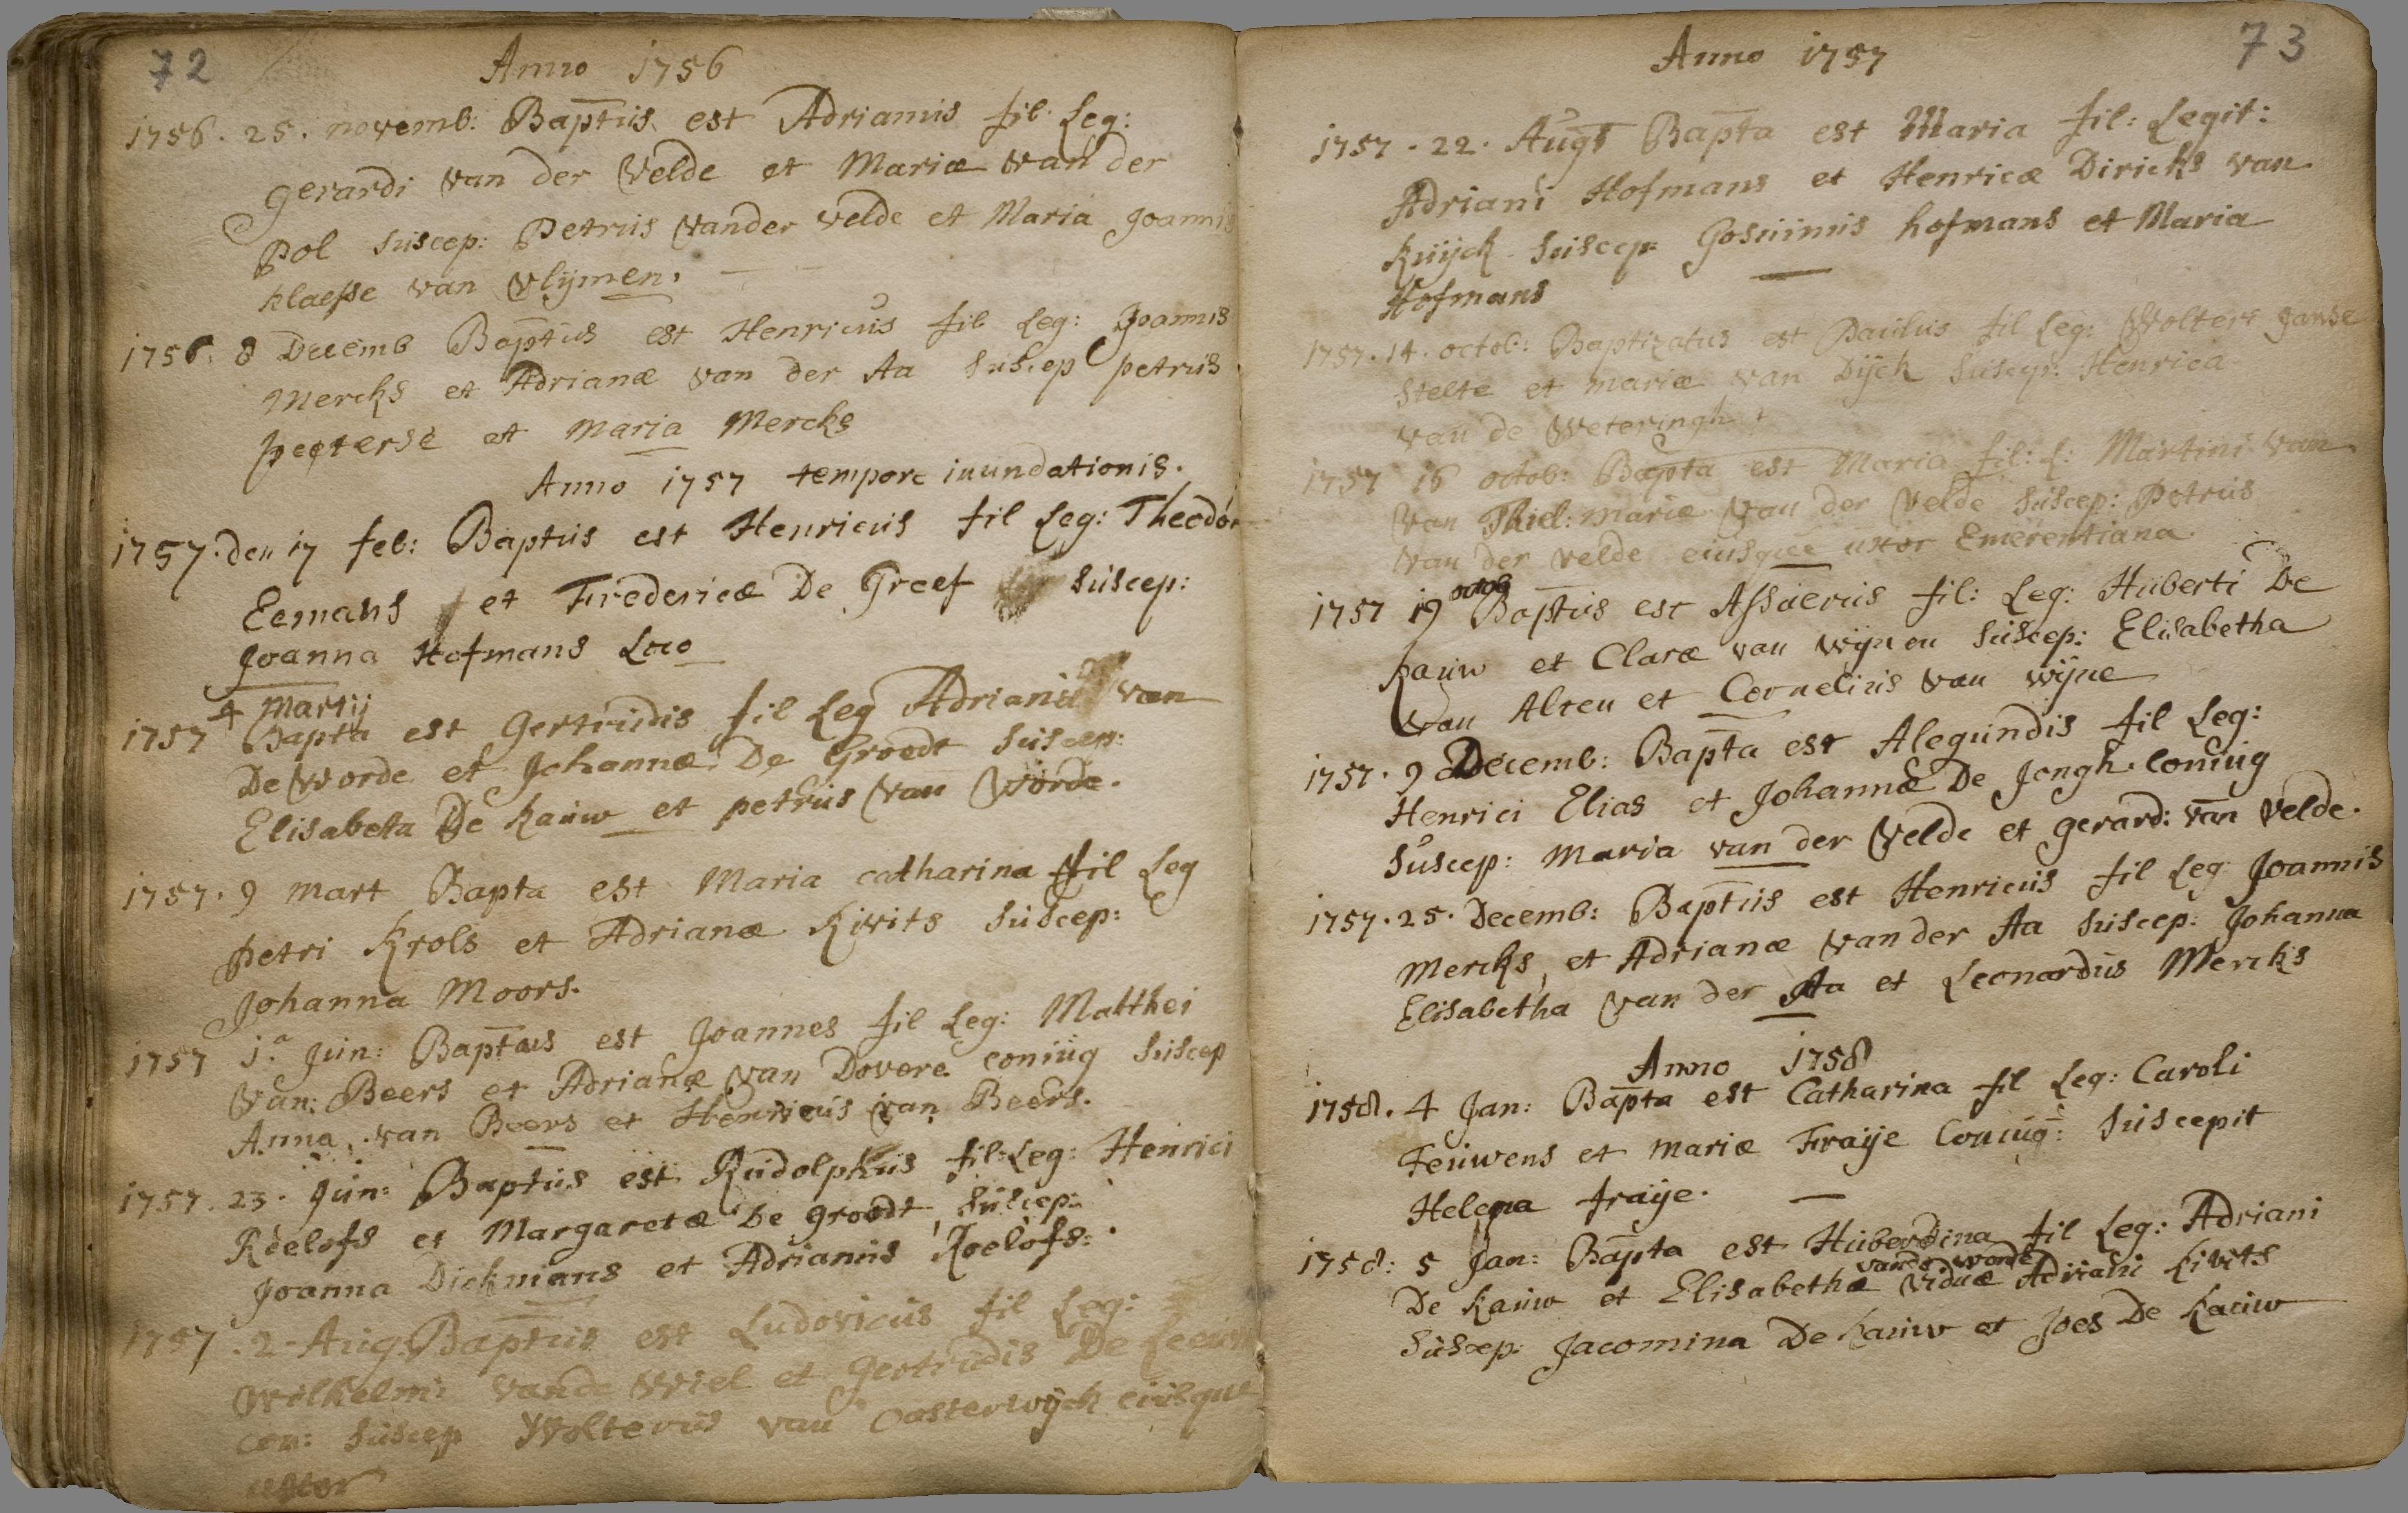 72
Anno 1756
1756. 25. novemb: Baptus est Adrianus fil. Leg:
gerardi van der Velde et Mariæ van der
Pol suscep: Petrus vander velde et Maria Joannis
klaesse van Vlijmen.
1756. 8 Decemb Baptus est Henricus fil Leg: Joannis
Mercks et Adrianæ van der Aa suscep petrus
peeterse et Maria Mercks
Anno 1757 tempore inundationis.
1757. den 17 feb: Baptus est Henricus fil Leg: Theodor
Eemans et Fredericæ De Greef suscep:
Joanna Hofmans Loco
4 Martij
1757 Bapta est gertrudis fil Leg Adriani van
De Worde et Johannæ De Groodt suscep:
Elisabeta De kauw et petrus van Worde.
1757. 9 mart Bapta est Maria catharina fil Leg
petri Krols et Adrianæ Kivits suscep:
Johanna Moors.
1757 1.a Jun: Baptus est Joannes fil Leg: Matthei
van: Beers et Adrianæ van Dovere coniug suscep
Anna van Beers et Henricus van Beers.
1757. 23. Jun: Baptus est Rudolphus fil Leg: Henrici
Roelofs et Margaretæ De groodt suscep:
Joanna Dickmans et Adrianus Roelofs:.
1757. 2. Aug. Baptus est Ludovicus fil Leg:
Wilhelmi vande Wiel et gertrudis De Leeuw
con: suscep Wolterus van Oosterwijck eiusque
uxor
73
Anno 1757
1757. 22. Augs Bapta est Maria fil: Legit:
Adriani Hofmans et Henricæ Diricks van
Kuijck suscep: Gosuinus hofmans et Maria
Hofmans
1757. 14. octob: Baptizatus est Paulus fil Leg: Wolteri Janse
Stelte et mariæ van Dijck suscep: Henrica
van de Weteringh
1757 16 octob: Bapta est Maria fil: L: Martini van
van Thiel: mariæ van der Velde suscep: Petrus
van der velde eiusque uxor Emerentiana.
octob
1757 19 Baptus est Assuerus fil: Leg: Huberti De
kauw et Claræ van Wijnen suscep: Elisabetha
van Alten et Cornelius van wijne
1757. 9 Decemb: Bapta est Alegundis fil Leg:
Henrici Elias et Johannæ De Jongh. coniug
suscep: Maria van der Velde et gerard: van Velde.
1757. 25. Decemb: Baptus est Henricus fil Leg Joannis
Mercks et Adrianæ van der Aa suscep: Johanna
Elisabetha van der Aa et Leonardus Mercks
Anno 1758
1758. 4 Jan: Bapta est Catharina fil Leg: Caroli
Feuwens et mariæ Fraije Coniug: suscepit
Helena fraije.
1758: 5 Jan: Bapta est Huberdina fil Leg: Adriani
vande worde
De kauw et Elisabethæ viduæ Adriani Kivits
suscep: Jacomina De kauw et Joes De kauw